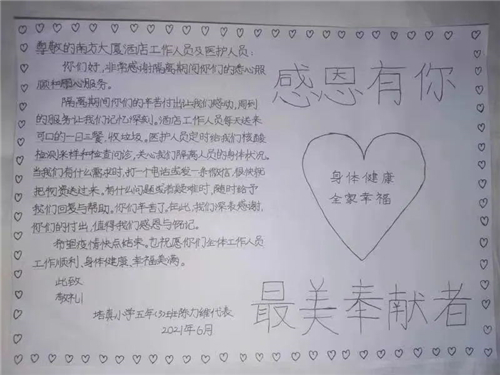 尊敬的南方大厦酒店工作人员及医护人员:
你们好,非常感谢隔离期间你们的悉心照
顾和暖心服务。
隔离期间你们的辛苦付出让我们感动,周到
的服务让我们记忆深刻。酒店工作人员每天送来
可口的一日三餐、收垃圾。医护人员定时给我们核酸
检测采样和检查问诊,关心我们隔离人员的身体状况。
当我们有什么需求时,打一个电话或发一条微信,很快就
把物资送过来,有什么问题或者疑难时,随时给予
我们回复与帮助。你们辛苦了。在此,我们深表感谢,
你们的付出,值得我们感恩与铭记。
希望疫情快点结束。也祝愿你们全体工作人员
工作顺利、身体健康、幸福美满。
此致
敬礼!
培真小学五年 班 代表
2021年6月
感恩有你
身体健康
全家幸福
最美奉献者